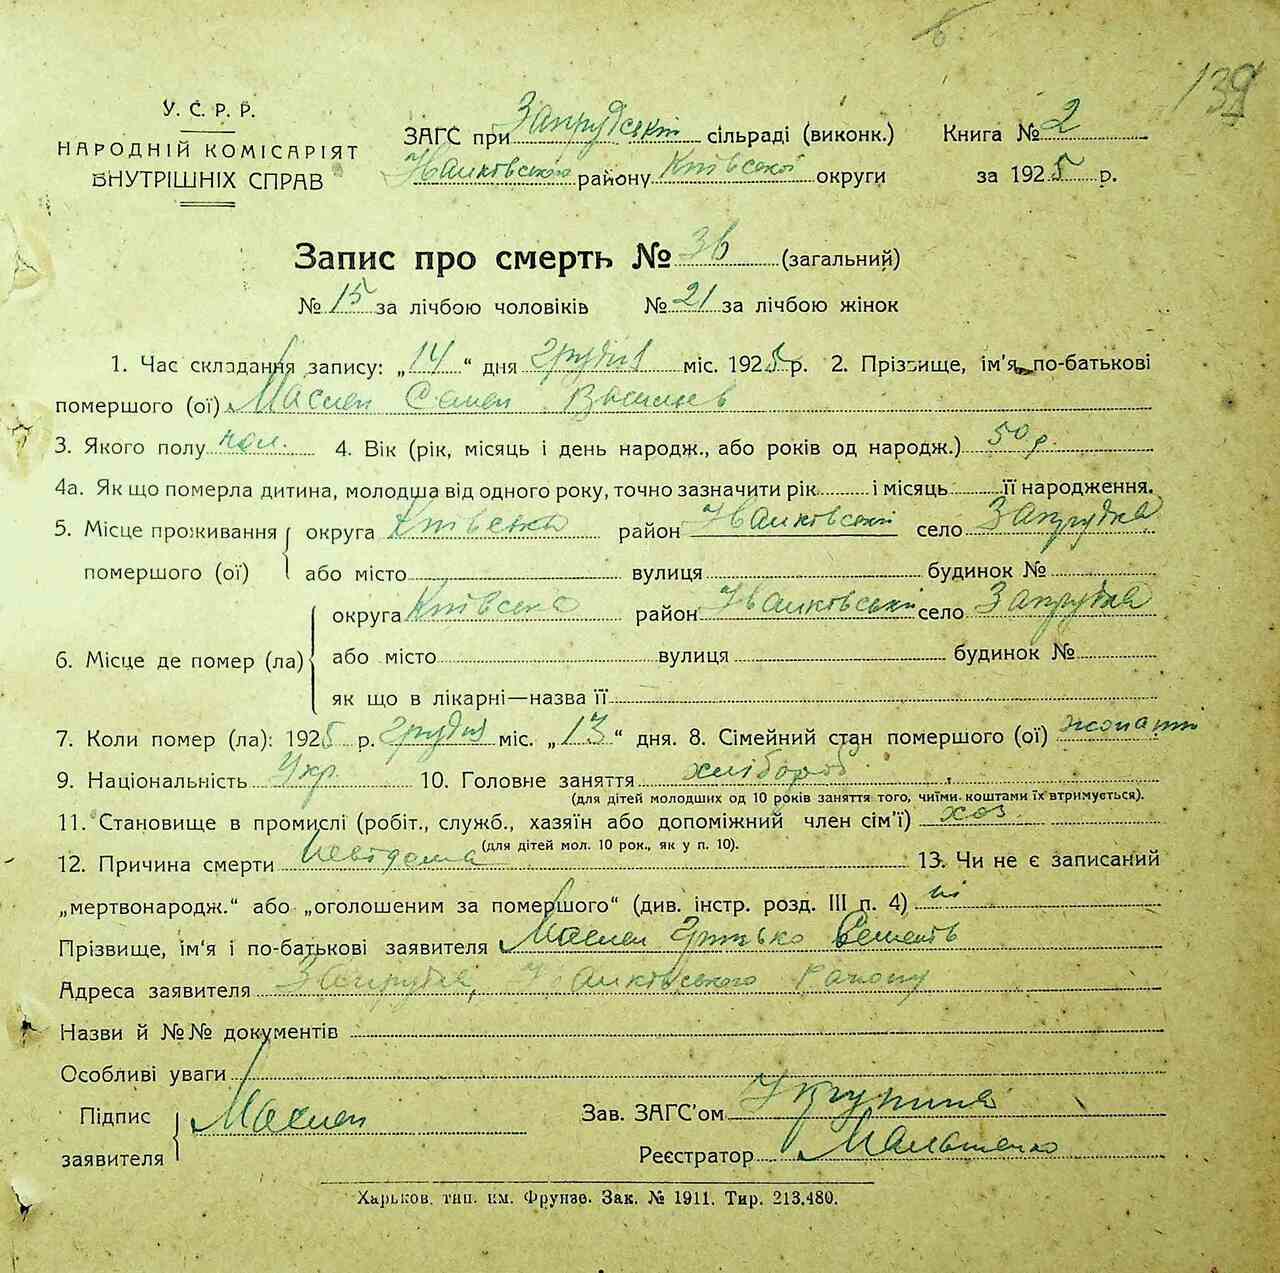 139
У. С. Р. Р.
НАРОДНІЙ КОМІСАРІЯТ
ВНУТРІШНІХ СПРАВ
ЗАГС при Запрудській сільраді (виконк.)
Іванковського району Київської округи
Книга № 2
за 1925 р.
Запис про смерть № 36 (загальний)
№ 15 за лічбою чоловіків № 21 за лічбою жінок
1. Час складання запису: „14“ дня грудня міс. 1925 р. 2. Прізвище, ім'я по-батькові
помершого (ої) Маслен Семен
3. Якого полу чол. 4. Вік (рік, місяць і день народж., або років од народж.) 50 р.
4а. Як що померла дитина, молодша від одного року, точно зазначити рік і місяць її народження.
5. Місце проживання помершого (ої) округа Київська район Іванковський село Запрудка
або місто вулиця будинок №
6. Місце де помер (ла) округа Київська район Іванковський село Запрудка
або місто вулиця будинок №
як що в лікарні—назва її
7. Коли помер (ла): 1925 р. грудня міс. „13“ дня. 8. Сімейний стан помершого (ої) жонатий
9. Національність Укр. 10. Головне заняття хлібороб
(для дітей молодших од 10 років заняття того, чиїми коштами їх втримується).
11. Становище в промислі (робіт., служб., хазяїн або допоміжний член сім'ї) хоз.
(для дітей мол. 10 рок., як у п. 10).
12. Причина смерти Невідома 13. Чи не є записаний
„мертвонародж.“ або „оголошеним за помершого“ (див. інстр. розд. III п. 4) ні
Прізвище, ім'я і по-батькові заявителя Маслен Грицько
Адреса заявителя Запрудка, Іванковського Району
Назви й №№ документів
Особливі уваги
Підпис заявителя Маслен
Зав. ЗАГС'ом
Реєстратор
Харьков, тип. им. Фрунзе. Зак. № 1911. Тир. 213.480.